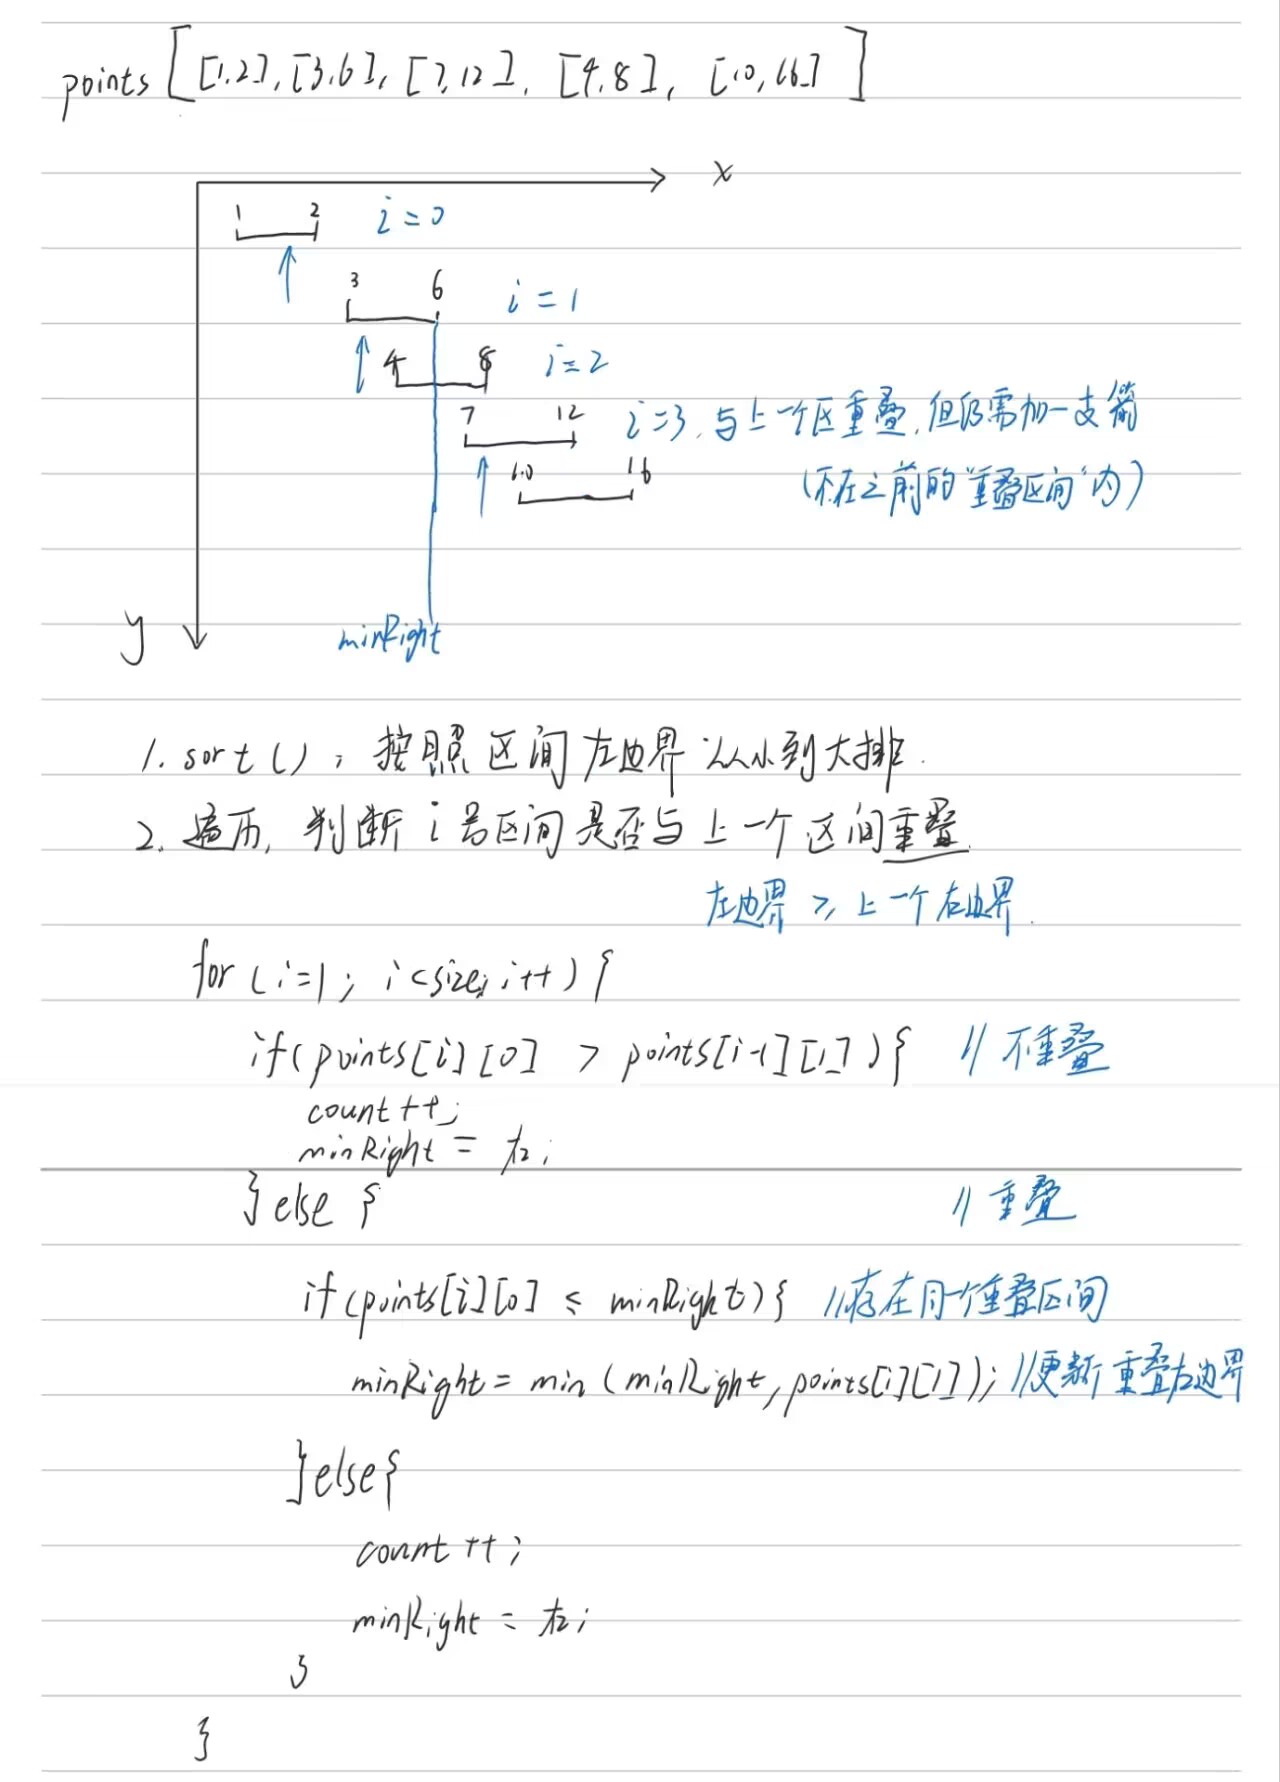 points [ [1,2], [3,6], [7,12], [4,8], [10,16] ]
x
1 2 i=0
3 6 i=1
4 8 i=2
7 12 i=3, 与上一个区重叠,但仍需加一支箭
10 16 (不在之前的"重叠区间"内)
y
minRight
1. sort(): 按照区间左边界从小到大排.
2. 遍历, 判断 i 号区间是否与上一个区间重叠.
左边界 ≥ 上一个右边界.
for (i=1; i<size; i++) {
if(points[i][0] > points[i-1][1]) { // 不重叠
count++;
minRight = 右;
} else { // 重叠
if(points[i][0] ≤ minRight) { //存在同一个重叠区间
minRight = min (minRight, points[i][1]); //更新重叠右边界
} else {
count++;
minRight = 右;
}
}